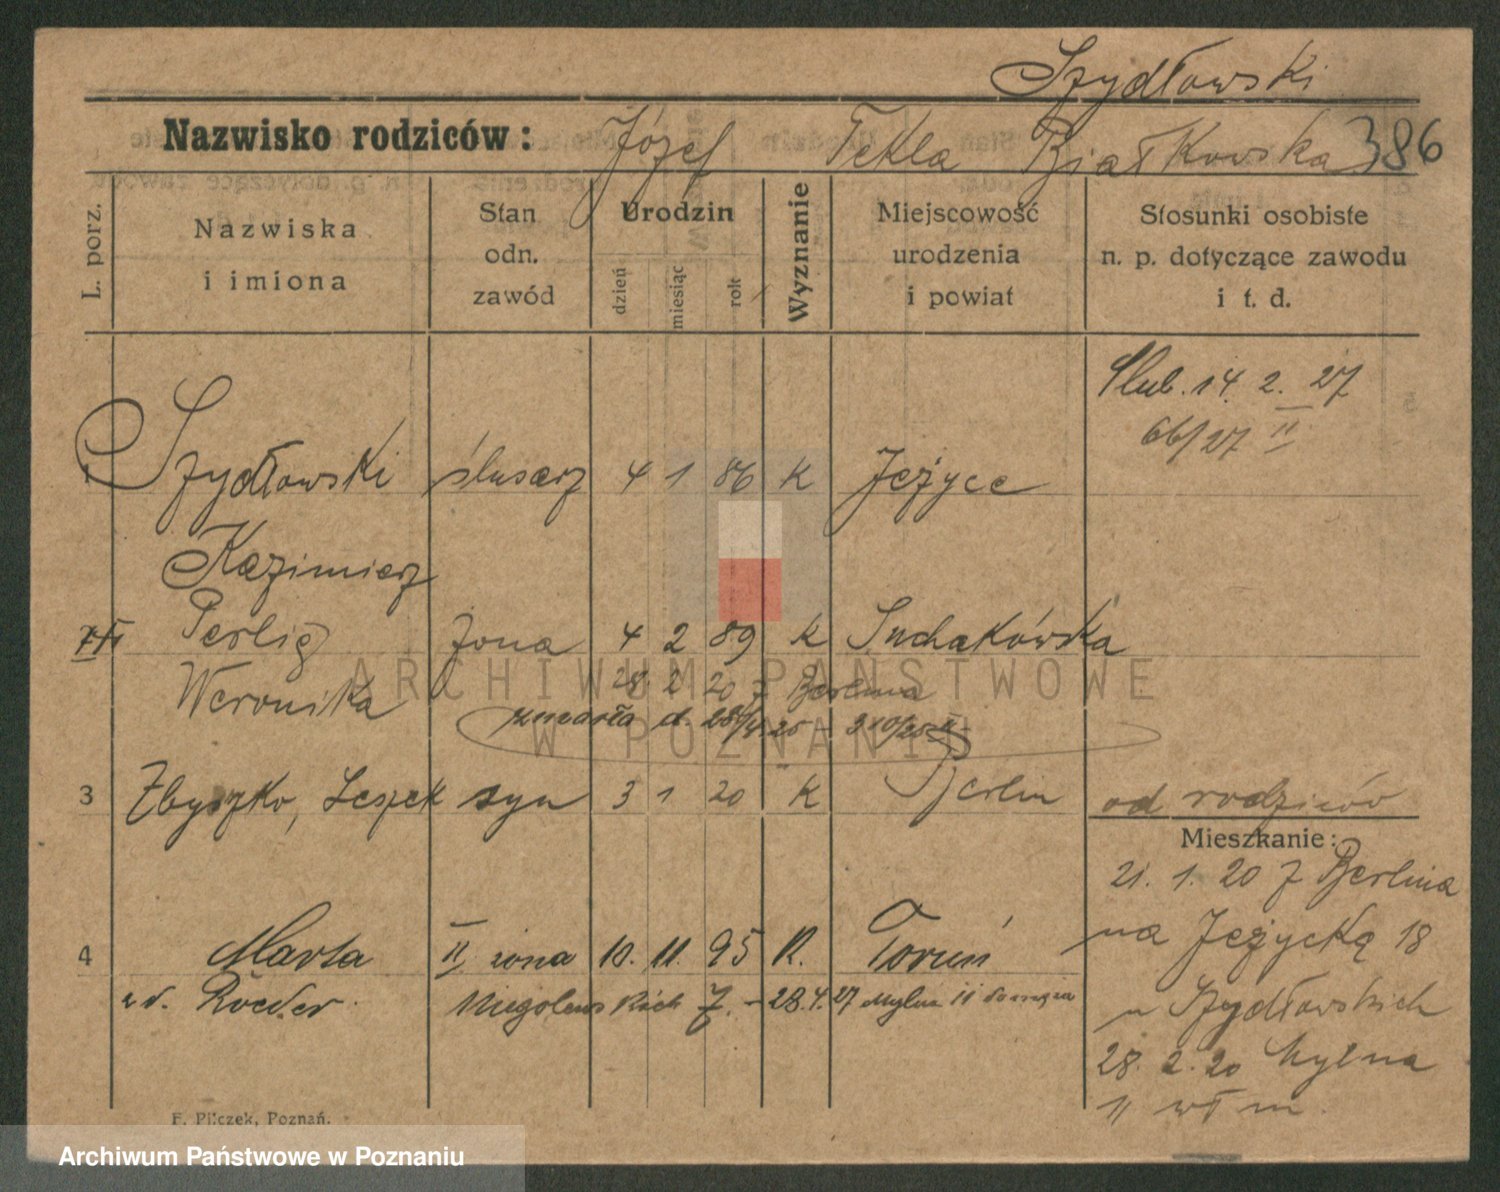 Szydłowski
Nazwisko rodziców: Józef Tekla Białkowska 386
L. porz.
Nazwiska i imiona
Stan odn. zawód
Urodzin
dzień
miesiąc
rok
Wyznanie
Miejscowość urodzenia i powiat
Stosunki osobiste n. p. dotyczące zawodu i t. d.
Ślub. 14. 2. 27
66/27 II
1 Szydłowski ślusarz 4 1 86 K Jeżyce
Kazimierz
Perlig żona 4 2 89 K Suchakówska
Weronika 28 2 20 z Berlina
zmarła d. 28/4 25 - 310/25 II
3 Zbyszko, Leszek syn 3 1 20 K Berlin od rodziców
Mieszkanie:
21. 1. 20 z Berlina
na Jeżycką 18
u Szydłowskich
28. 2. 20 Mylna
11 wł m.
4 Marta II żona 10. 11. 95 K. Toruń
z d. Roeder. 28.4.27 Mylna 11 do męża
F. Pilczek, Poznań.
ARCHIWUM PAŃSTWOWE
W POZNANIU
Archiwum Państwowe w Poznaniu